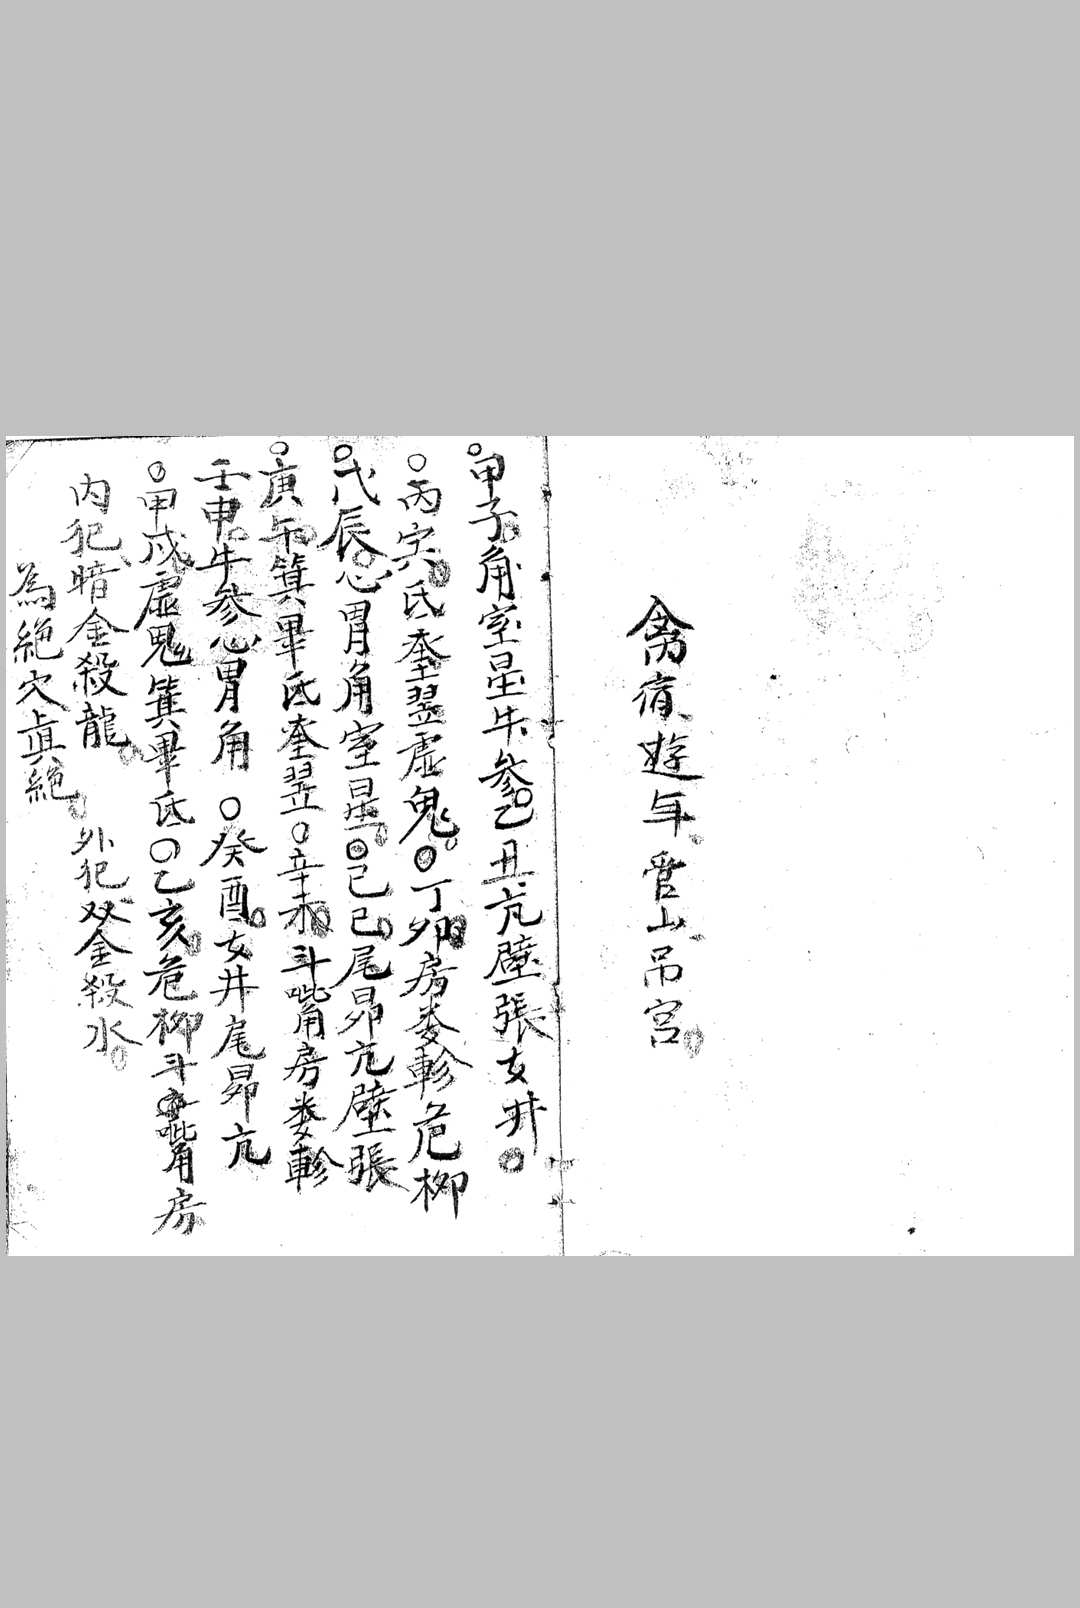 禽宿遊年管山吊宮
○甲子角室星牛參○乙丑亢壁張女井○
○丙寅氐奎翌虛鬼○丁卯房娄軫危柳
○戊辰心胃角室星○己巳尾昴亢壁張
○庚午箕畢氐奎翌○辛未斗嘴房娄軫
壬申牛參心胃角○癸酉女井尾昴亢
○甲戌虛鬼箕畢氐○乙亥危柳斗嘴房
內犯暗金殺龍 外犯双金殺水
為絕穴真絕